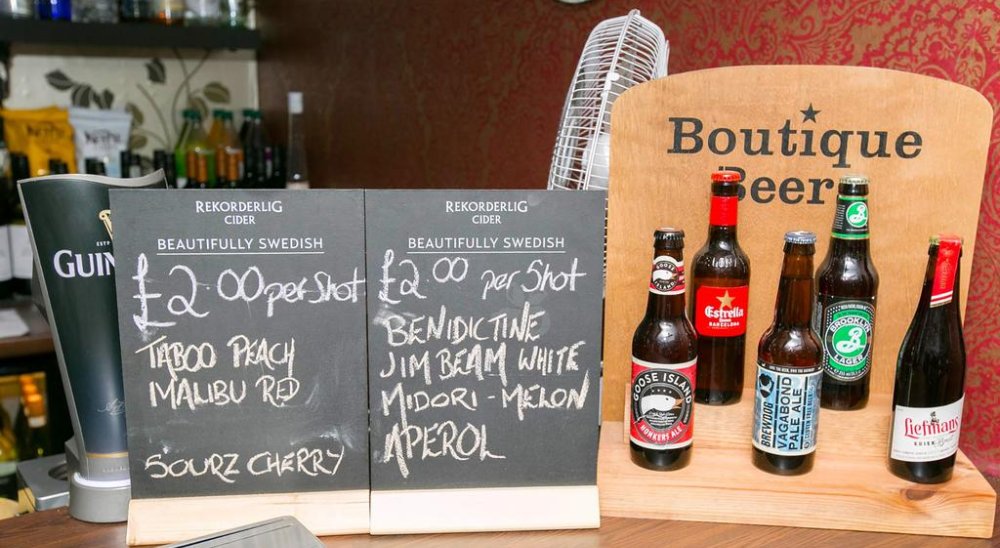 GUIN
REKORDERLIG
CIDER
BEAUTIFULLY SWEDISH
£2.00 per shot
TABOO PEACH
MALIBU RED
SOURZ CHERRY
REKORDERLIG
CIDER
BEAUTIFULLY SWEDISH
£2.00 per Shot
BENIDICTINE
JIM BEAM WHITE
MIDORI - MELON
APEROL
Boutique
Beer
GOOSE
ISLAND
GOOSE ISLAND
HONKERS ALE
Estrella
BARCELONA
BREWDOG
VAGABOND
PALE ALE
BROOKLYN
LAGER
Liefmans